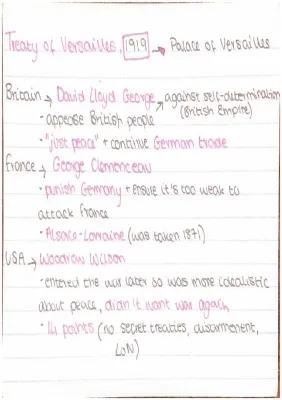 Treaty of Versailles, 1919 → Palace of Versailles
Britain → David Lloyd George → against self-determination
(British Empire)
- appease British people
- "just peace" + continue German trade
France → George Clemenceau
- punish Germany + ensure it's too weak to
attack France
- Alsace-Lorraine (was taken 1871)
USA → Woodrow Wilson
- entered the war later so was more idealistic
about peace, didn't want war again
- 14 points (no secret treaties, disarmement,
LoN)